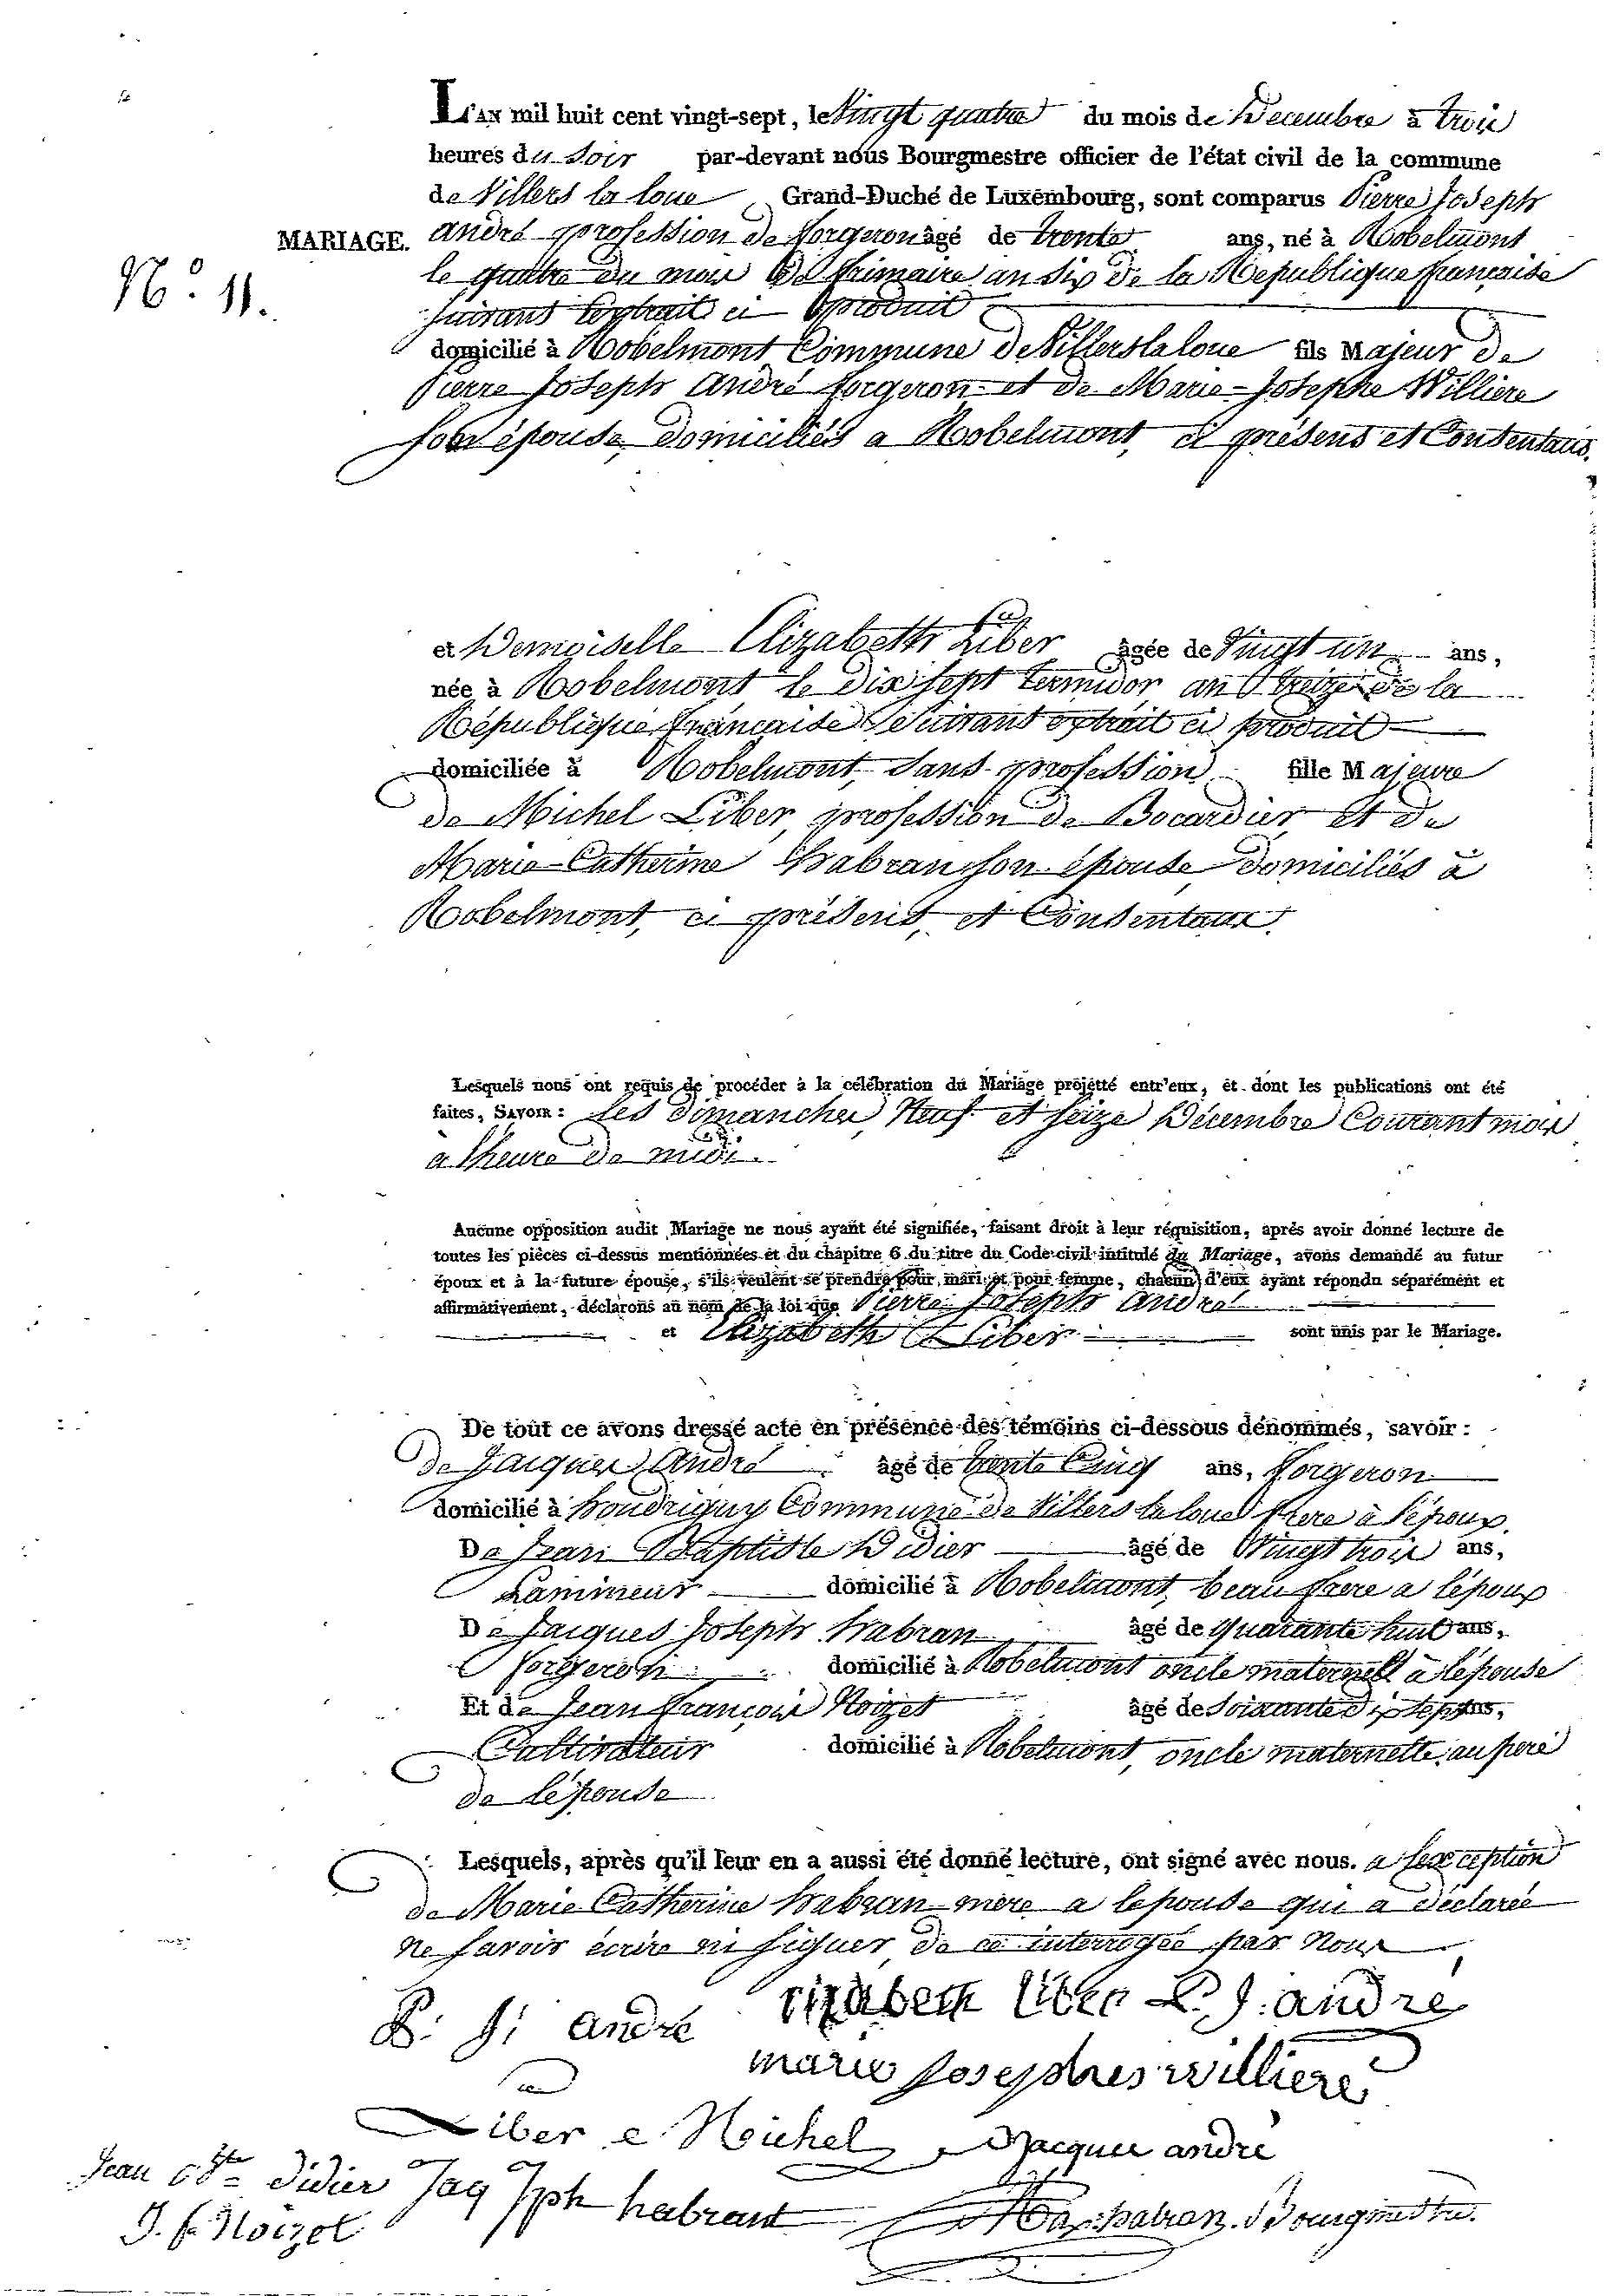 L'AN mil huit cent vingt-sept, le Vingt quatre du mois de Decembre à trois
heures du Soir par-devant nous Bourgmestre officier de l'état civil de la commune
de Villers la loue Grand-Duché de Luxembourg, sont comparus Pierre Joseph
MARIAGE. andré profession de forgeron âgé de trente ans, né à Robelmont
N.º 11. le quatre du mois de frimaire an Six de la Republique française
suivant Extrait ci produit
domicilié à Robelmont Commune de Villerslaloue fils Majeur de
Pierre Joseph André forgeron et de Marie-Josephe Williere
son épouse, domiciliés a Robelmont, ci présens et Consentans.
et Demoiselle Elizabeth Liber âgée de Vingt un ans,
née à Robelmont le dix sept termidor an treize de la
République française suivant extrait ci produit
domiciliée à Robelmont, Sans profession fille Majeure
de Michel Liber, profession de Bocardier, et de
Marie-Catherine habran son épouse domiciliés à
Robelmont, ci présens, et Consentans.
Lesquels nous ont requis de procéder à la célébration du Mariage projetté entr'eux, et dont les publications ont été
faites, SAVOIR : les dimanches, Neuf et seize Décembre Courant mois
a lheure de midi.
Aucune opposition audit Mariage ne nous ayant été signifiée, faisant droit à leur réquisition, après avoir donné lecture de
toutes les pièces ci-dessus mentionnées et du chapitre 6 du titre du Code civil intitulé du Mariage, avons demandé au futur
époux et à la future épouse, s'ils veulent se prendre pour mari et pour femme, chacun d'eux ayant répondu séparément et
affirmativement, déclarons au nom de la loi que Pierre Joseph André
et Elizabeth Liber sont unis par le Mariage.
De tout ce avons dressé acte en présence des témoins ci-dessous dénommés, savoir :
de Jacques André âgé de trente Cinq ans, forgeron
domicilié à houdrigny Commune de Villers la loue frere à l'époux.
De Jean Baptiste Didier âgé de Vingt trois ans,
Lamineur domicilié à Robelmont, beau frere a lépoux
De Jacques Joseph habran âgé de quarante huit ans,
forgeron domicilié à Robelmont oncle maternell à lépouse
Et de Jean françois Noizet âgé de Soixante dix sept ans,
Cultivateur domicilié à Robelmont, oncle maternelle au pere
de lépouse
Lesquels, après qu'il leur en a aussi été donné lecture, ont signé avec nous. a lexception
de Marie Catherine habran mere a lepouse qui a déclarée
ne savoir écrire ni signer de ce interrogée par Nous
P. J. andré Elizabeth liber P. J. andre
marie Josephes williere
Liber Michel Jacques andré
Jean Bte didier Jaq Jph habrant
J. f. Noizet habran. Bourgmestre.